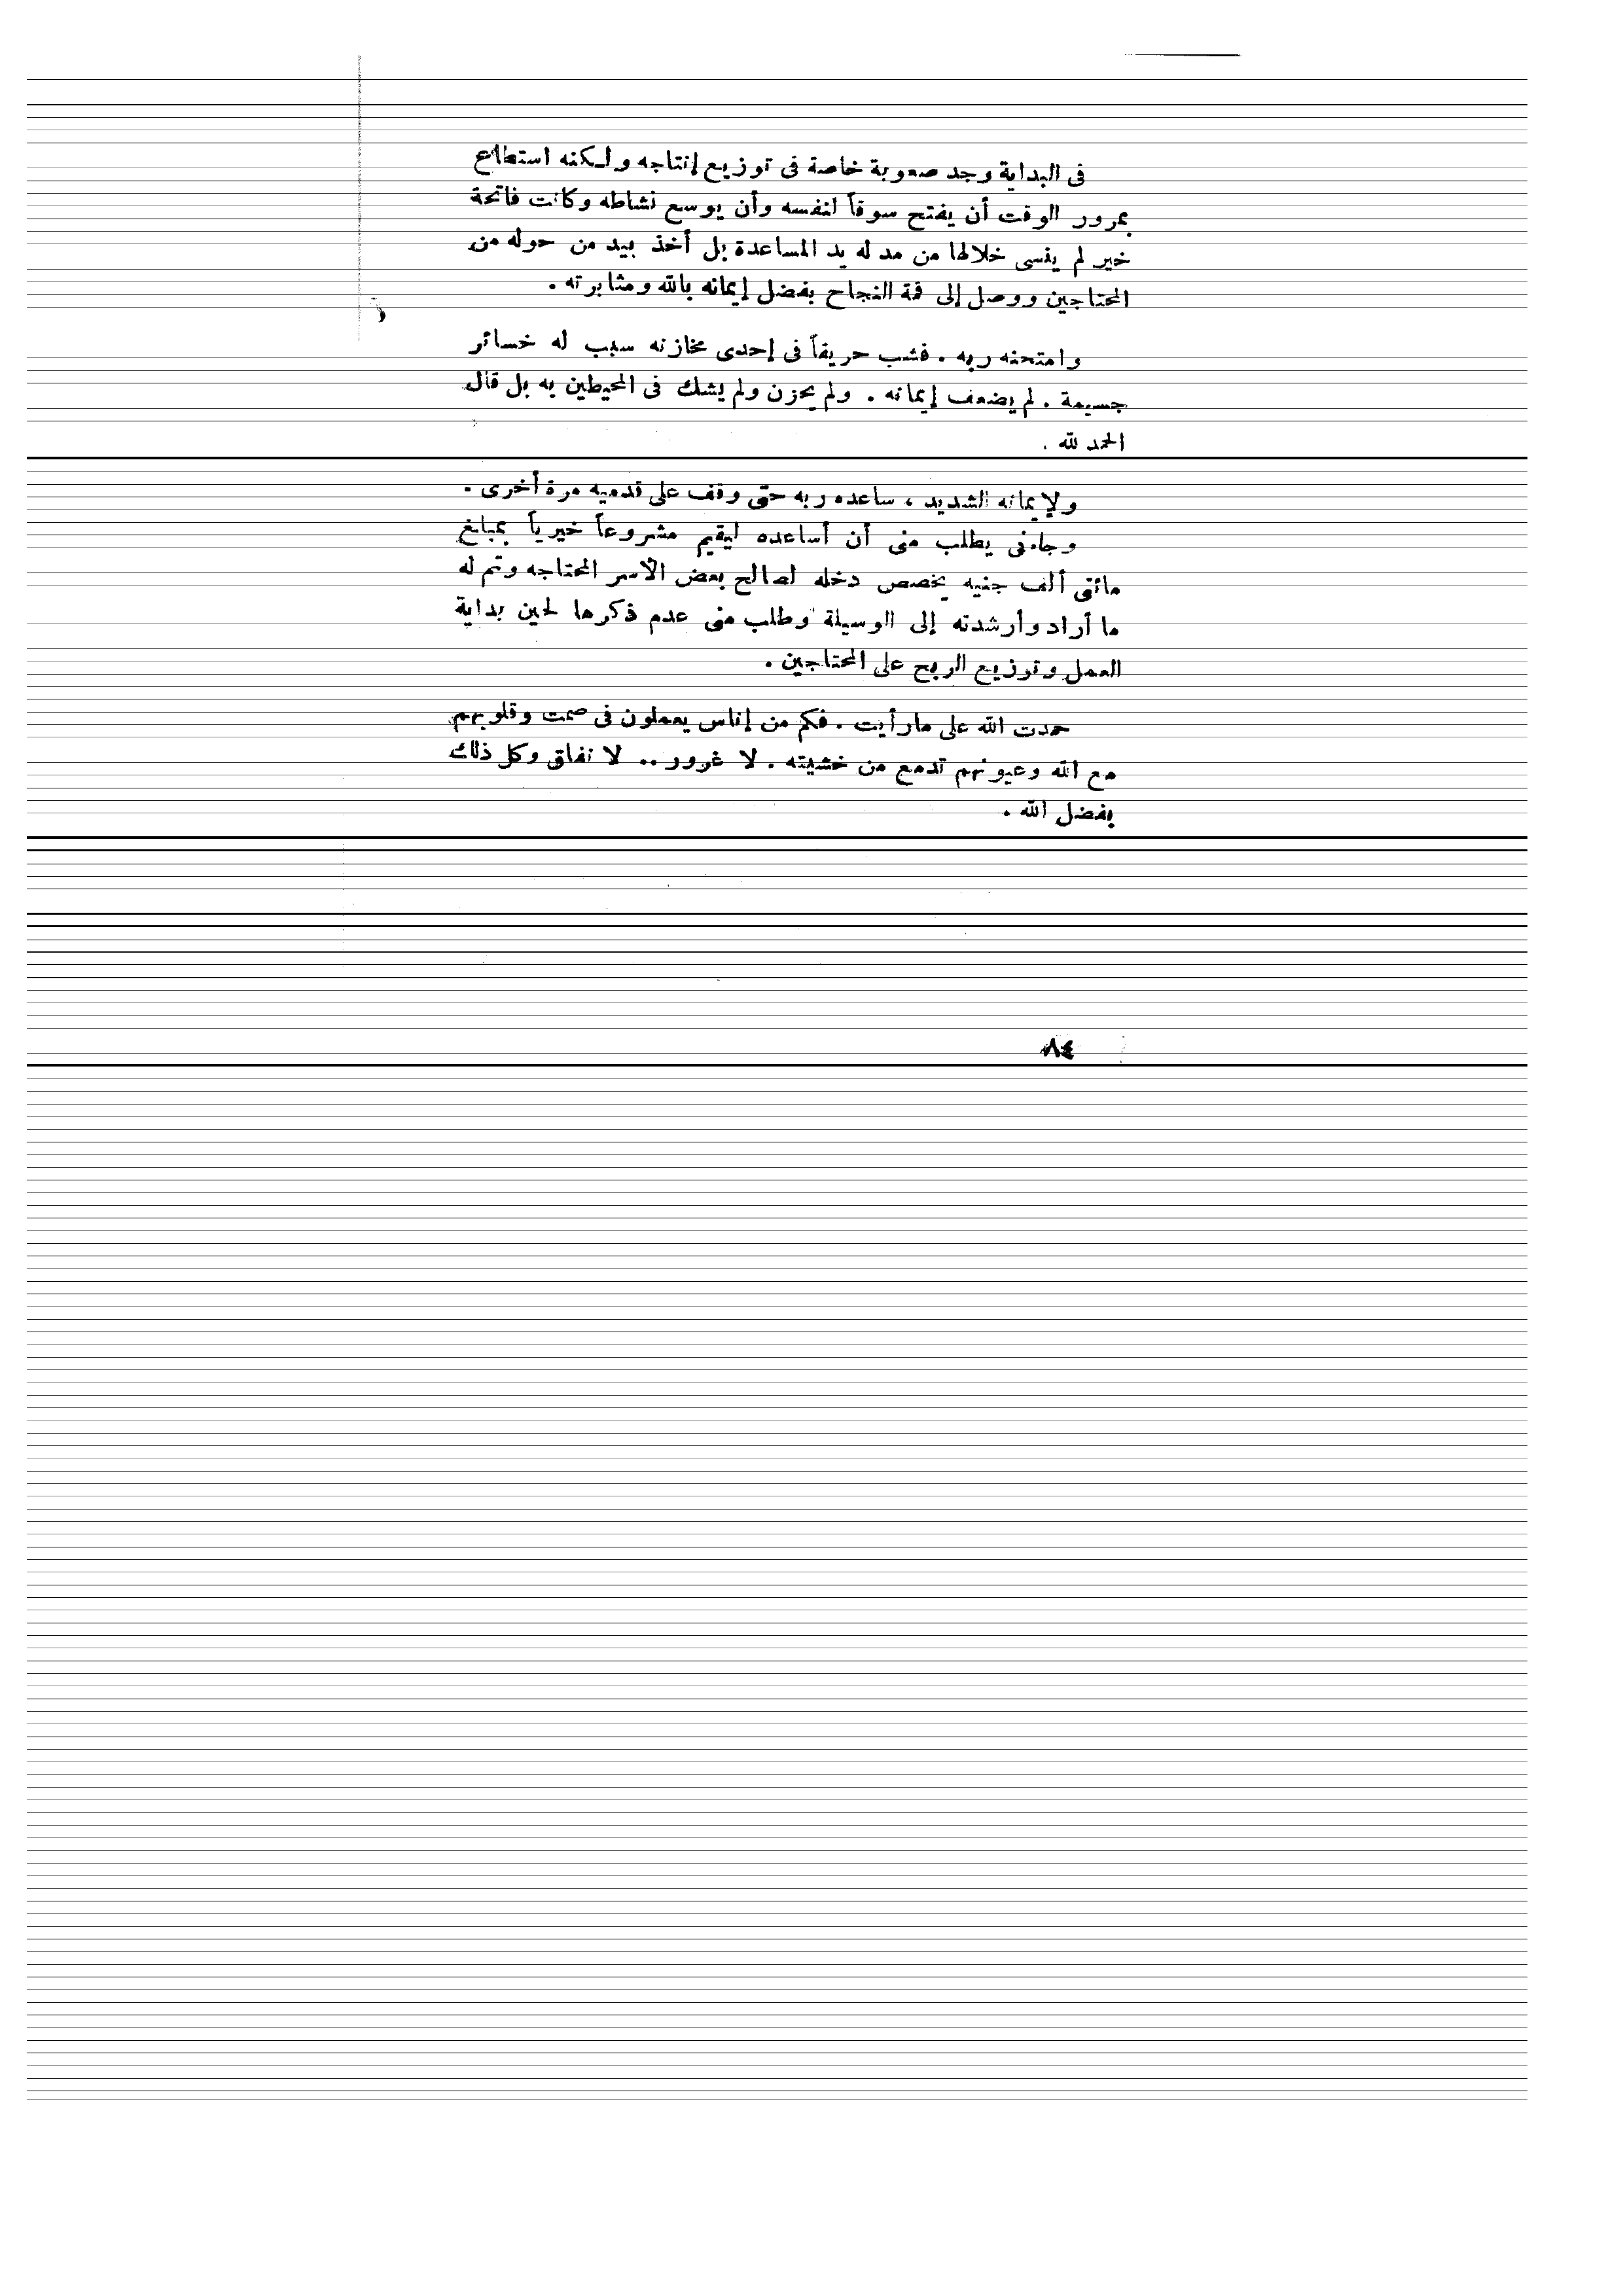 فى البداية وجد صعوبة خاصة فى توزيع إنتاجه ولكنه استطاع
بمرور الوقت أن يفتح سوقاً لنفسه وأن يوسع نشاطه وكانت فاتحة
خير لم ينسى خلالها من مد له يد المساعدة بل أخذ بيد من حوله من
المحتاجين ووصل إلى قمة النجاح بفضل إيمانه بالله ومثابرته .
وامتحنه ربه . فشب حريقاً فى إحدى مخازنه سبب له خسائر
جسيمة . لم يضعف إيمانه . ولم يحزن ولم يشك فى المحيطين به بل قال
الحمد لله .
ولإيمانه الشديد ، ساعده ربه حتى وقف على قدميه مرة أخرى .
وجاءنى يطلب منى أن أساعده ليقيم مشروعاً خيرياً بمبلغ
مائتى ألف جنيه يخصص دخله لصالح بعض الاسر المحتاجه وتم له
ما أراد وأرشدته إلى الوسيلة وطلب منى عدم ذكرها لحين بداية
العمل وتوزيع الربح على المحتاجين .
حمدت الله على مارأيت . فكم من إناس يعملون فى صمت وقلوبهم
مع الله وعيونهم تدمع من خشيته . لا غرور .. لا نفاق وكل ذلك
بفضل الله .
٨٤